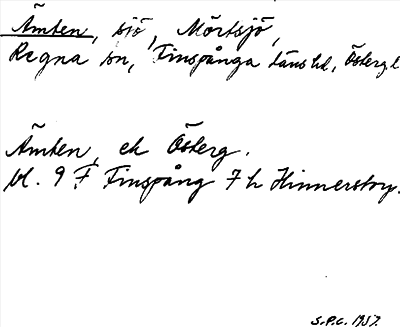 Ämten, sjö, Mörtsjö,
Regna sn, Finspånga läns hd, Östergl
Ämten, ek Österg.
bl. 9 F Finspång 7 h Hinnerstorp.
S.P.C. 1937.